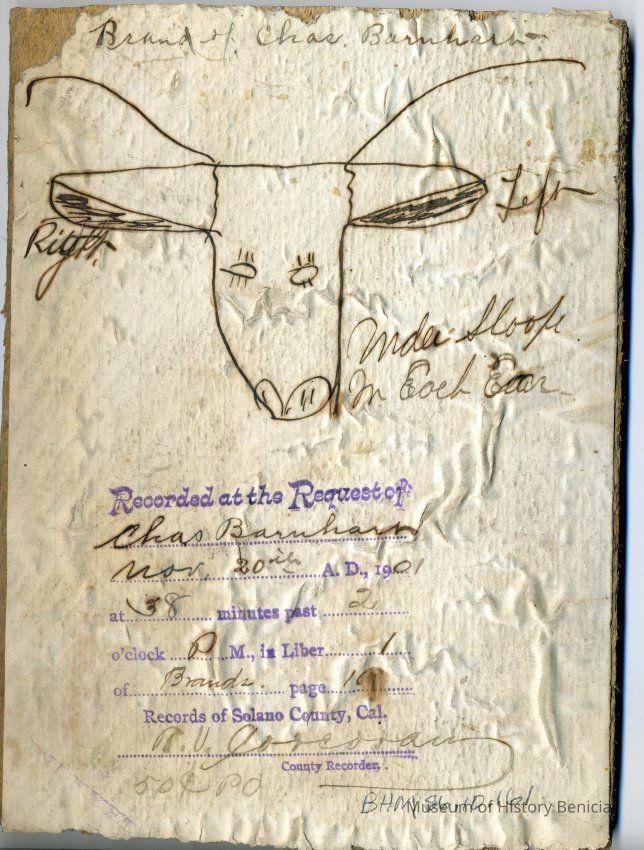 Brand of Chas. Barnhart
Left
Right
Under Sloope
In Each Ear
Recorded at the Request of
Chas Barnhart
Nov. 20th A. D., 1901
at 38 minutes past 2
o'clock P M., in Liber 1
of Brands page
Records of Solano County, Cal.
County Recorder.
50¢ PD
Museum of History Benicia